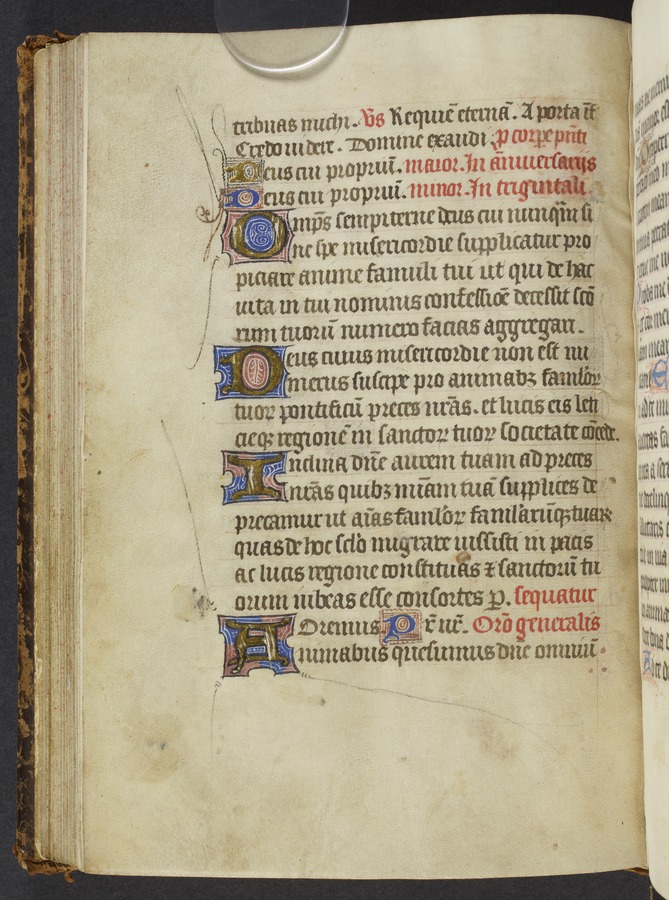 tribuas michi. Vs Requiē eternā. A porta īf
Credo videre. Domine exaudi. p corpe pnti
Deus cui propriū. maior. In āniuersarijs
Deus cui propriū. minor. In trigintali.
Omps sempiterne deus cui nunq̄m si
ne spe misericordie supplicatur pro
piciare anime famuli tui ut qui de hac
uita in tui nominis confessiōe decessit scō
rum tuorū numero facias aggregari.
Deus cuius misericordie non est nu
merus suscipe pro animabꝫ famlōꝝ
tuoꝝ pontificū preces nr̄as. et lucis eis leti
cieqꝫ regionē in sanctoꝝ tuoꝝ societate cōcede.
Inclina dn̄e aurem tuam ad preces
nr̄as quibꝫ mīam tuā supplices de
precamur ut aīas famlōꝝ famlāriūqꝫ tuaꝝ
quas de hoc sclō migrare iussisti in pacis
ac lucis regione constituas ⁊ sanctorū tu
orum iubeas esse consortes p̱. sequatur
ADoremus Pr̄ nr̄. Orō generalis
nimabus quesumus dn̄e omniū